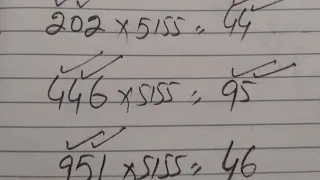 202 × 5155 = 44
446 × 5155 = 95
951 × 5155 = 46